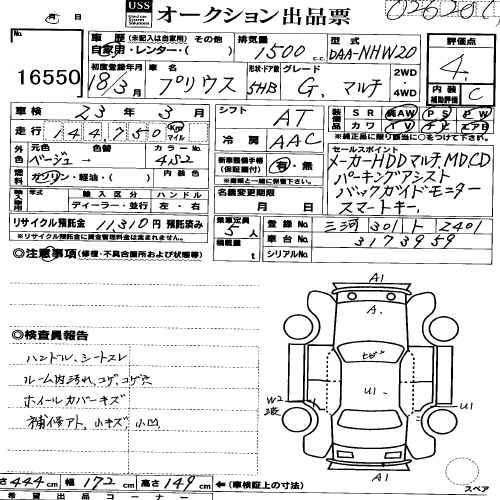 月 日
USS
オークション出品票
16550
車歴 (未記入は自家用) その他
自家用・レンター・( )
排気量 1500 c.c.
型式 DAA-NHW20
評価点 4.
初度登録年月 18/3 月
車名 プリウス
形状・ドア数 5HB
グレード G. マルチ
2WD・4WD
内装 補助評価 C
車検 23年 3月
走行 144750 Km マイル
シフト AT
冷房 AAC
装備品 SR 純AW PS PW
カワ TV ナビ エアB
外色 元色 ベージュ→ 色替 カラーNo. 4S2 内装色
燃料 ガソリン・軽油・( )
新車整備手帳 (保証書付) 有・無
セールスポイント
メーカーHDDマルチ, MD,CD
パーキングアシスト
バックガイドモニター
スマートキー,
輸入車 年式 輸入区分 ハンドル
ディーラー・並行 左・右
名義変更期限 月 日
リサイクル預託金 11310円 預託済み
※リサイクル預託金に資金管理料金は含まれません。
乗車定員 5人
積載量 t
登録 三河 301 ト 2401
車台 3173959
シリアルNo.
◎注意事項 (修復・不具合箇所および状態等)
◎検査員報告
ハンドル、シートスレ
ルーム内汚れ, コゲ, コゲ穴
ホイールカバーキズ
補修アト, 小キズ 小凹
A1
A.
U1
W2
U1
A1
スペア
長さ 444cm 幅 172cm 高さ 149cm ←(車検証上の寸法)
希望出品コーナー